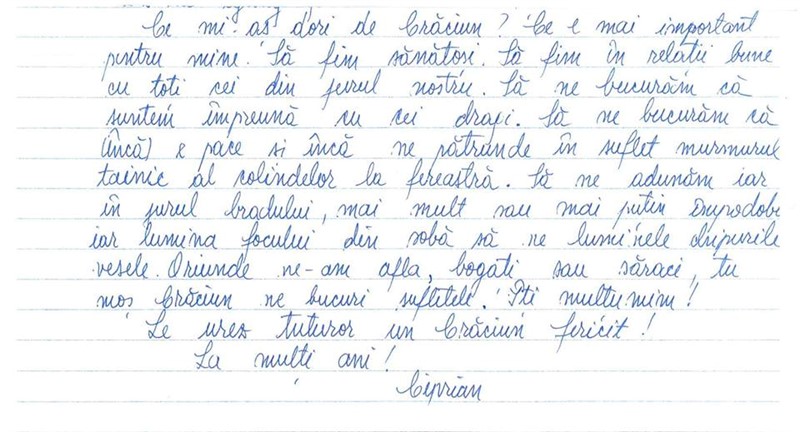 Ce mi-aș dori de Crăciun? Ce e mai important
pentru mine. Să fim sănătosi. Să fim în relatii bune
cu toti cei din jurul nostru. Să ne bucurăm că
suntem împreună cu cei dragi. Să ne bucurăm că
(încă) e pace si încă ne pătrunde în suflet murmurul
tainic al colindelor la fereastră. Să ne adunăm iar
în jurul bradului, mai mult sau mai putin împodobit
iar lumina focului din sobă să ne lumineze chipurile
vesele. Oriunde ne-am afla, bogati sau săraci, tu
moș Crăciun ne bucuri sufletele. Iti multumim!
Le urez tuturor un Crăciun fericit!
La multi ani!
Ciprian